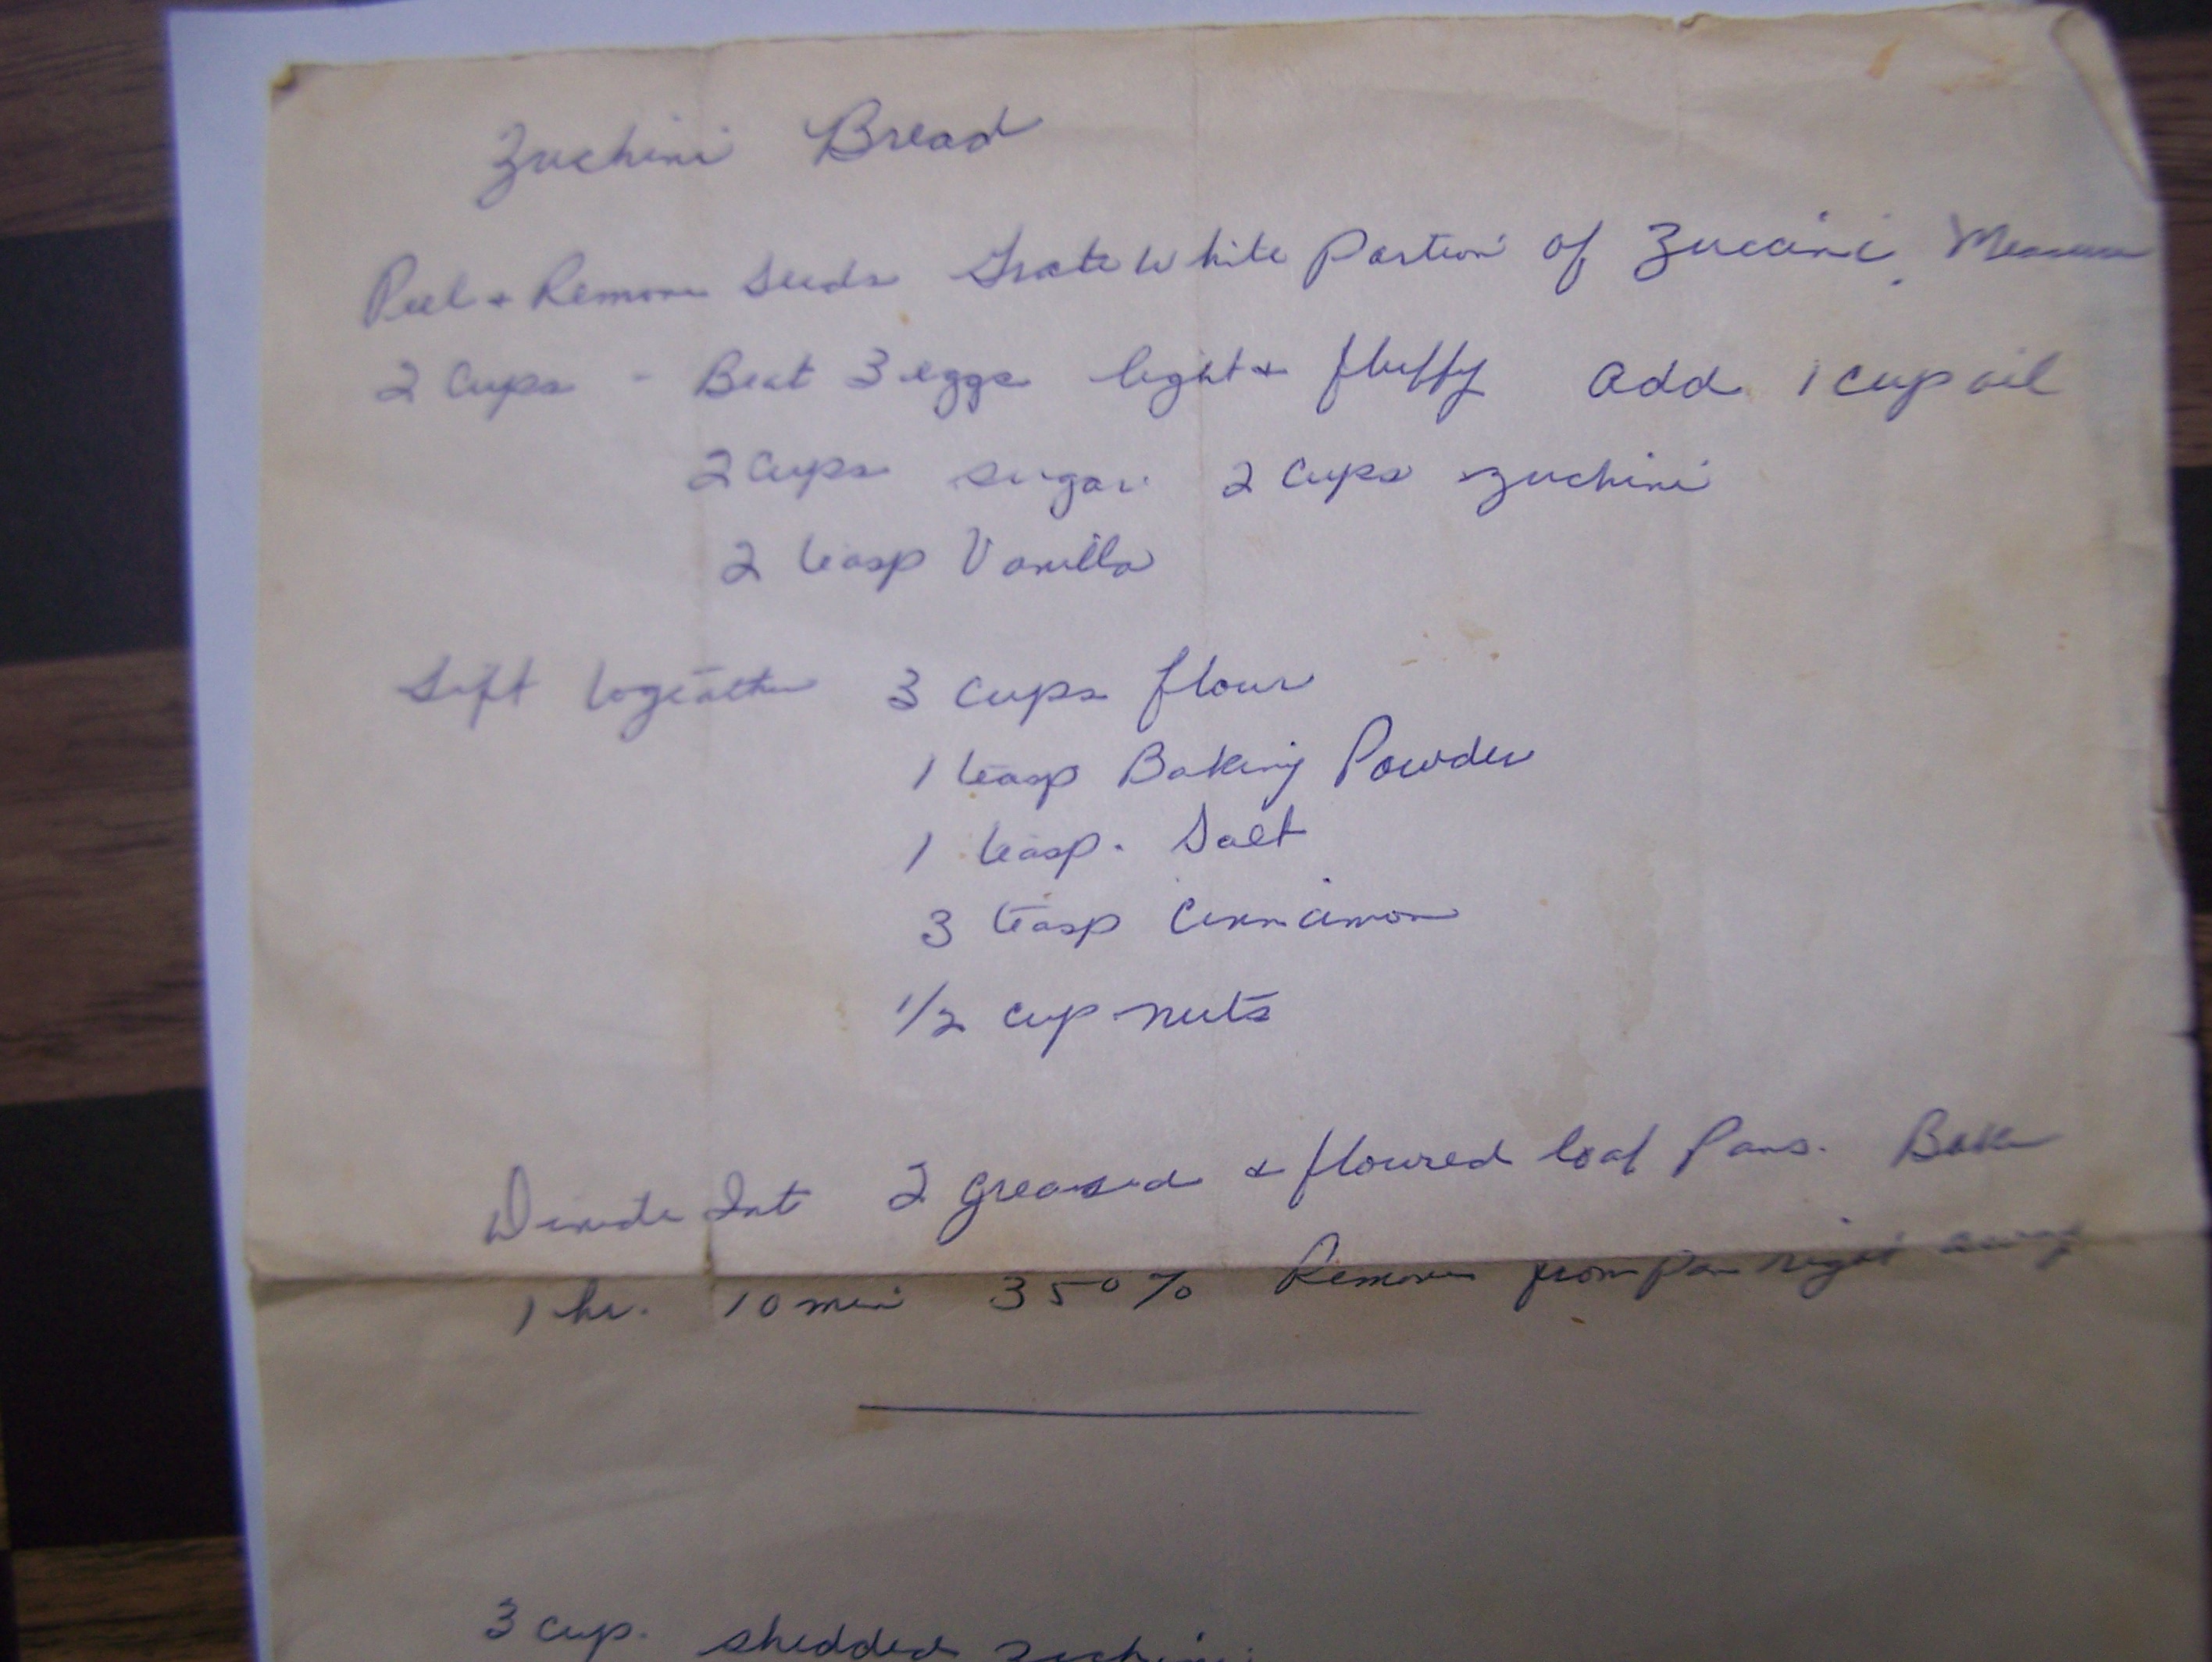 Zuchini Bread
Peel + Remove Seeds Grate White Portion of Zuccini. Measure
2 Cups - Beat 3 eggs light + fluffy add 1 cup oil
2 cups sugar 2 cups zuchini
2 teasp Vanilla
Sift togeather 3 cups flour
1 teasp Baking Powder
1 teasp. Salt
3 teasp Cinnamon
1/2 cup nuts
Divide Int 2 greased + floured loaf Pans. Bake
1 hr. 10 min 350% Remove from pan right away
3 cup. shedded zuchini